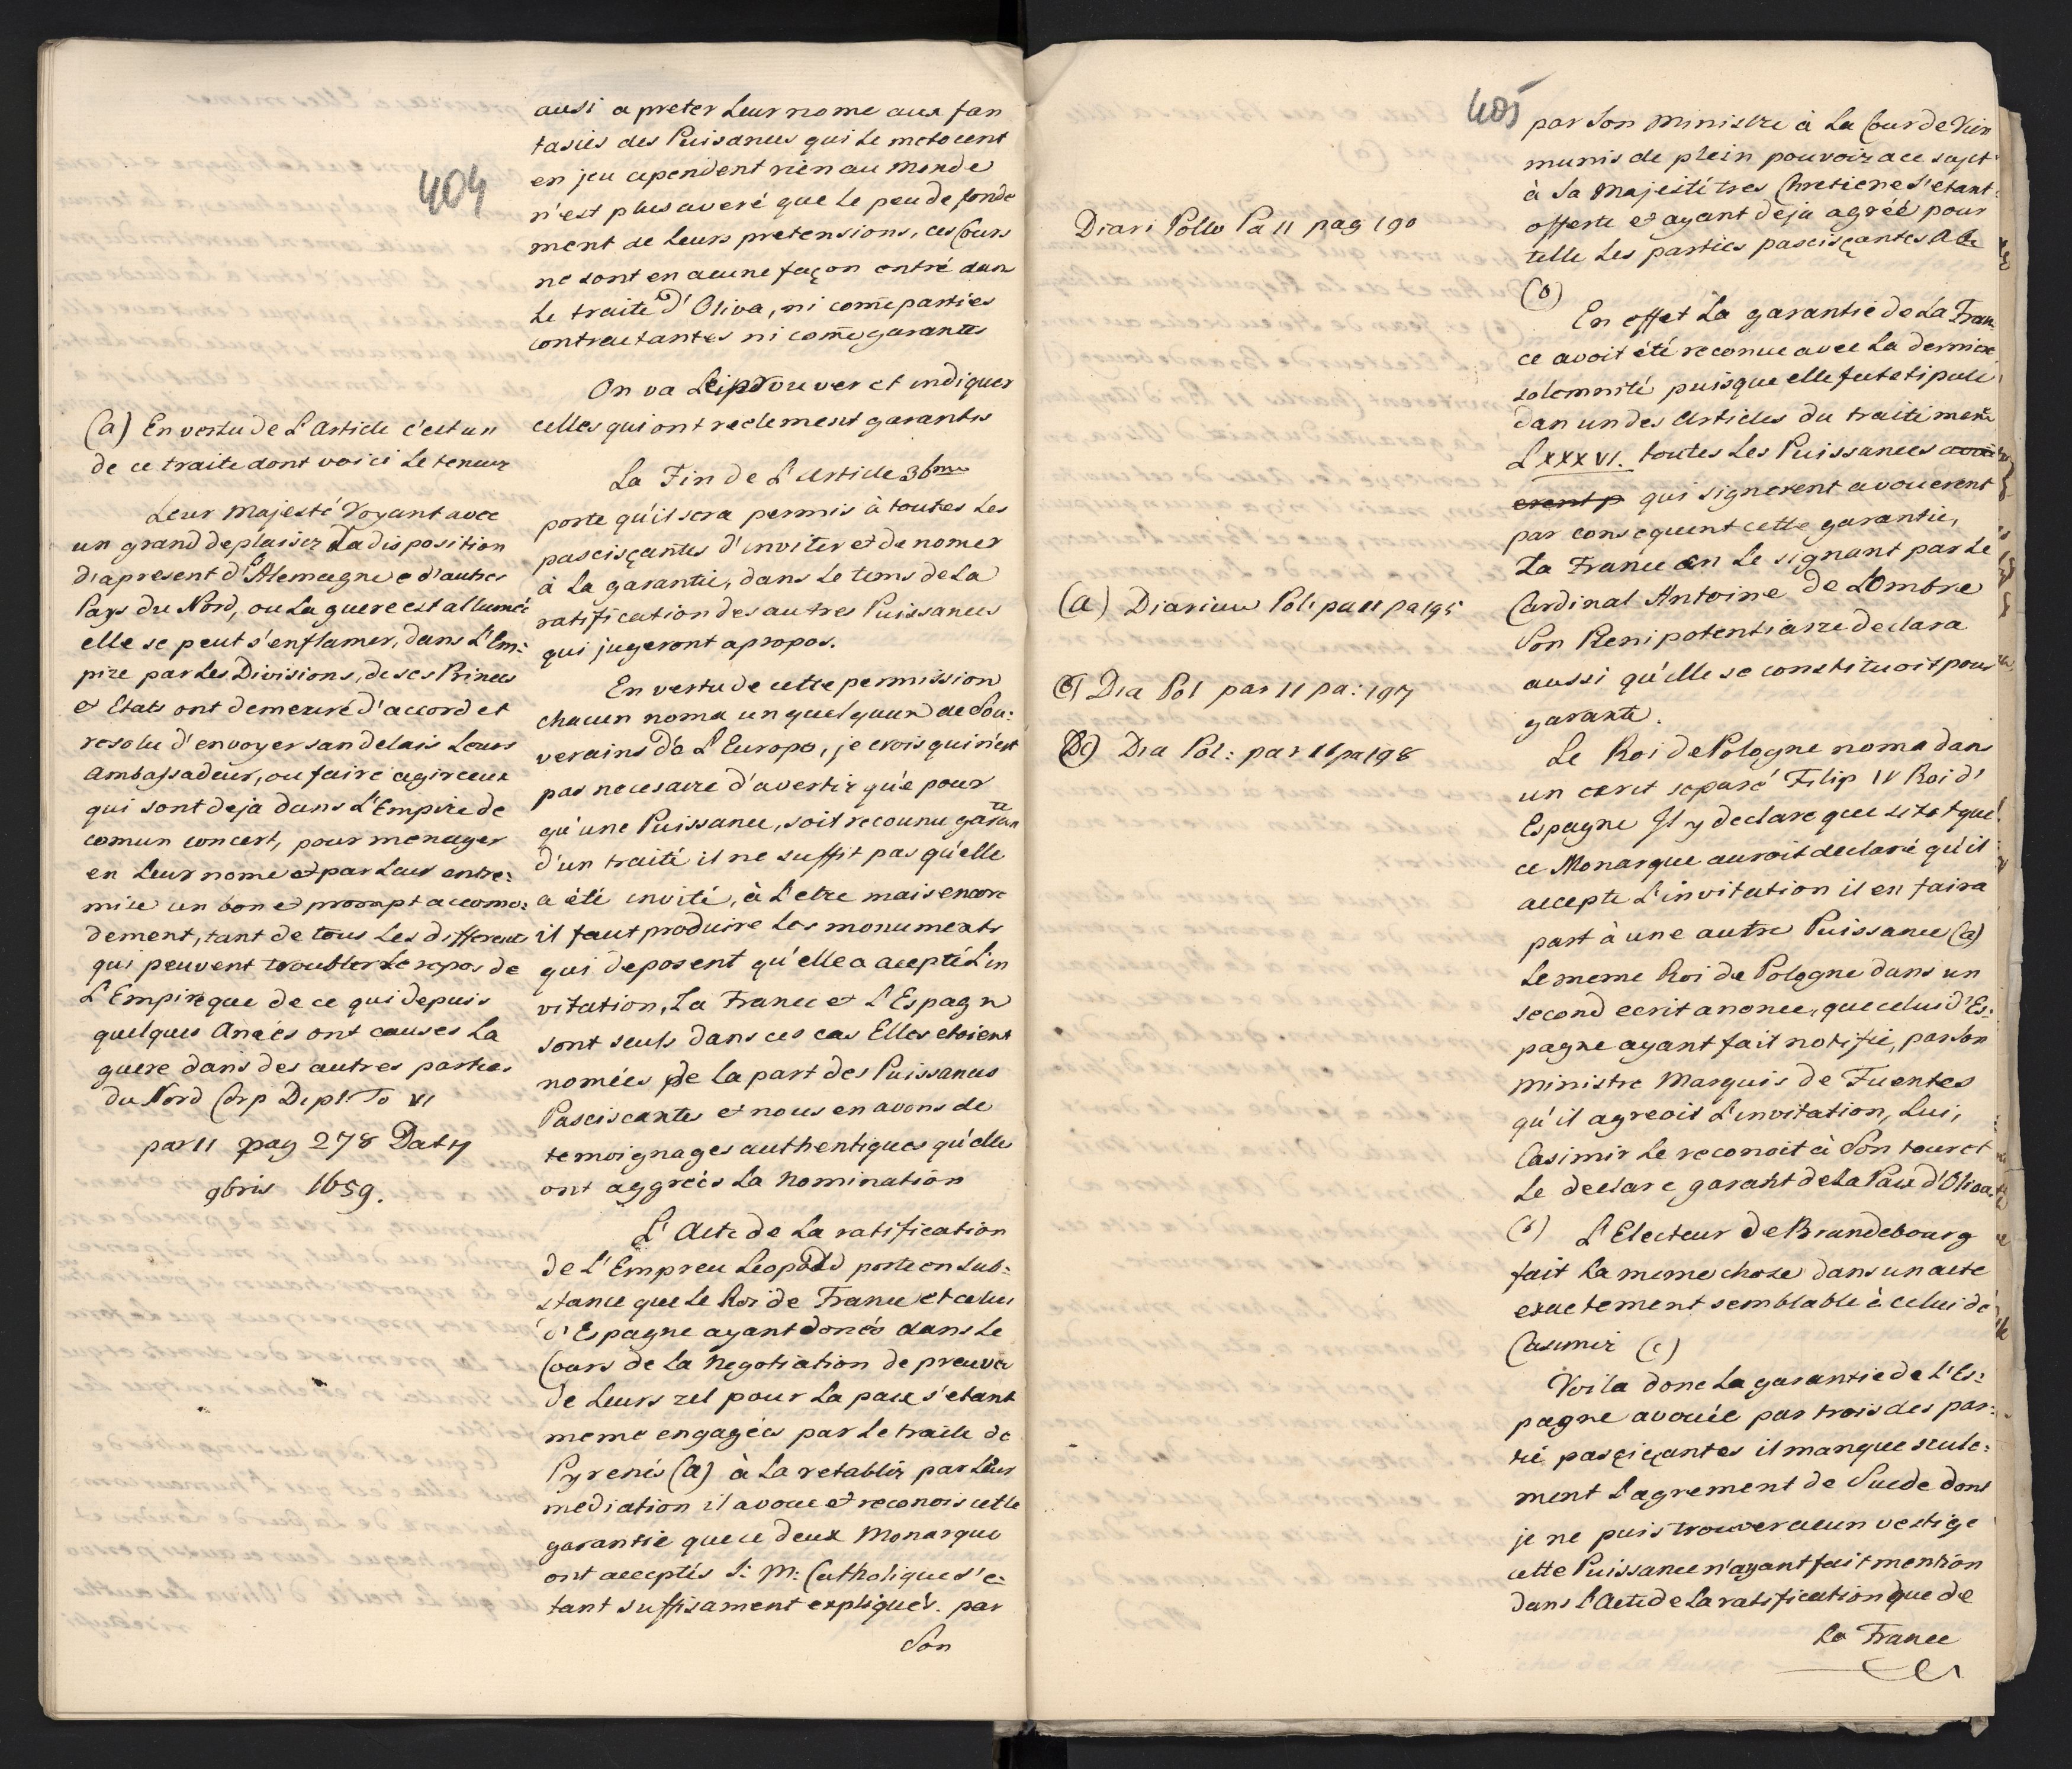 404
ausi a preter Leur nome aux fan
tasies des Puisances qui Le metocent
en jeu cependent rien au Monde
n'est plus averé que Le peu de fonde
ment de Leurs pretensions, ces Cours
ne sont en aucune façon entré dan
Le traité d'Oliva, ni come parties
contractantes ni come garantes
On va Le prouver et indiquer
celles qui ont reelement garantis
La Fin de L'Article 36me
porte qu'il sera permis à toutes Les
pascisçantes d'inviter et de nomer
à La garantie, dans Le tems de La
ratification des autres Puissances
qui jugeront apropos.
En vertu de cette permission
chacun noma un quelquun de Sou:
verains de L'Europe, je crois qui n'est
pas necesaire d'avertir que pour
qu'une Puissance, soit reconnu garan
d'un traité il ne suffit pas qu'elle
a été invité, à L'etre mais encore
il faut produire Les monuments
qui deposent qu'elle a accepté L'in
vitation, La France et L'Espagn
sont seuls dans ces cas Elles etoient
nomées de La part des Puissances
Pasciscantes et nous en avons de
temoignages authentiques qu'elles
ont aggreés La Nomination
L'Acte de La ratification
de L'Empreu Leopold porte en Sub:
stance que Le Roi de France et celui
d'Espagne ayant donés dans Le
Cours de La Negotiation de preuves
de Leurs zel pour La paix s'etant
meme engagées par Le traité de
Pyrenés (a) à La retablir par Leur
mediation il avoue et reconois cette
garantie que ce deux Monarque
ont acceptés S: M: Catholique s'e:
tant suffisament expliqués. par
Son
(a) En vertu de L'Article c'est un
de ce traite dont voici Le teneur
Leur Majesté Voyant avec
un grand deplaisir La disposition
d'apresent d'Alemagne e d'autres
Pays du Nord, ou La guere est allumée
elle se peut s'enflamer, dans L'Em:
pire par Les Divisions, de ses Princes
et Etats ont demeuré d'accord et
resolu d'envoyer san delais Leurs
Ambassadeur, ou faire agir ceux
qui sont deja dans L'Empire de
comun concert, pour menager
en Leur nome et par Leur entre:
mise un bon et prompt accomo:
dement, tant de tous Les differents
qui peuvent troubler Le repos de
L'Empire que de ce qui depuis
quelques Anées ont causes La
guere dans des autres parties
du Nord Corp Dipl: To VI
par II pag 278 Dat 7
9bris 1659.
405
par Son Ministre à La Cour de Vien
munis de plein pouvoir a ce sujet
à Sa Majesté tres Chretiene s'etant
offerte et ayant deja agréé pour
telle Les parties pascisçantes
(b)
En effet La garantie de La Fran
ce avoit été reconue avec La derniere
solemnité puisque elle fut stipulé
dan un des Articles du traité meme
L'XXXVI. toutes Les Puissances
qui signerent avouerent
par consequent cette garantie,
La France en Le signant par Le
Cardinal Antoine de Lombre
Son Plenipotentiaire declara
aussi qu'elle se constituoit pour
garante.
Le Roi de Pologne noma dans
un ecrit separé Filip IV Roi d'
Espagne Il y declare que si tot que
ce Monarque auroit declaré qu'il
accepte L'invitation il en faira
part à une autre Puissance (a)
Le meme Roi de Pologne dans un
second ecrit anonce, que celui d'Es:
pagne ayant fait notifié, par Son
Ministre Marquis de Fuentes
qu'il agreoit L'invitation, Lui,
Casimir Le reconoit à Son tour et
Le declare garant de La Paix d'Oliva
(b) L'Electeur de Brandebourg
fait La meme chose dans un acte
exactement semblable à celui de
Casimir (c)
Voila donc La garantie de L'Es:
pagne avouée par trois des par:
tie pasciçantes il manque seule:
ment L'agrement de Suede dont
je ne puis trouver aucun vestige
cette Puissance n'ayant fait mention
dans L'Acte de La ratification que de
La France
Diari Pollo Pa II pag 190
(a) Diarium Pol: pa II pa 195
(b) Dia Pol par II pa: 197
(c) Dia Pol: par II pa 198